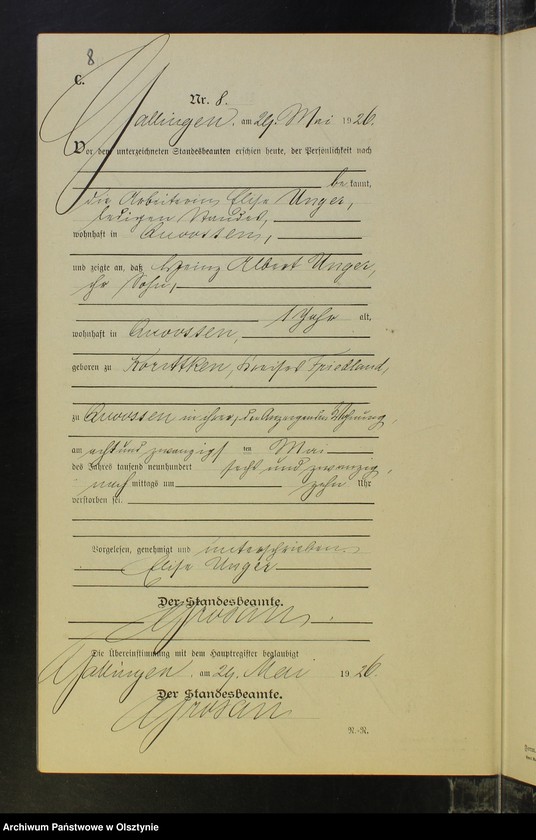 8
C.
Nr. 8.
Gallingen am 29. Mai 1926.
Vor dem unterzeichneten Standesbeamten erschien heute, der Persönlichkeit nach
bekannt,
die Arbeiterin Elise Unger,
ledigen Standes,
wohnhaft in
und zeigte an, daß Heinz Albert Unger,
ihr Sohn,
1 Jahr alt,
wohnhaft in
geboren zu Korittken, Kreises Friedland,
zu in ihrer, der Anzeigenden Wohnung,
am achtundzwanzigsten Mai
des Jahres tausend neunhundert sechsundzwanzig,
nachmittags um zehn Uhr
verstorben sei.
Vorgelesen, genehmigt und unterschrieben.
Elise Unger
Der Standesbeamte.
Die Übereinstimmung mit dem Hauptregister beglaubigt
Gallingen am 29. Mai 1926.
Der Standesbeamte.
N.-R.
Archiwum Państwowe w Olsztynie